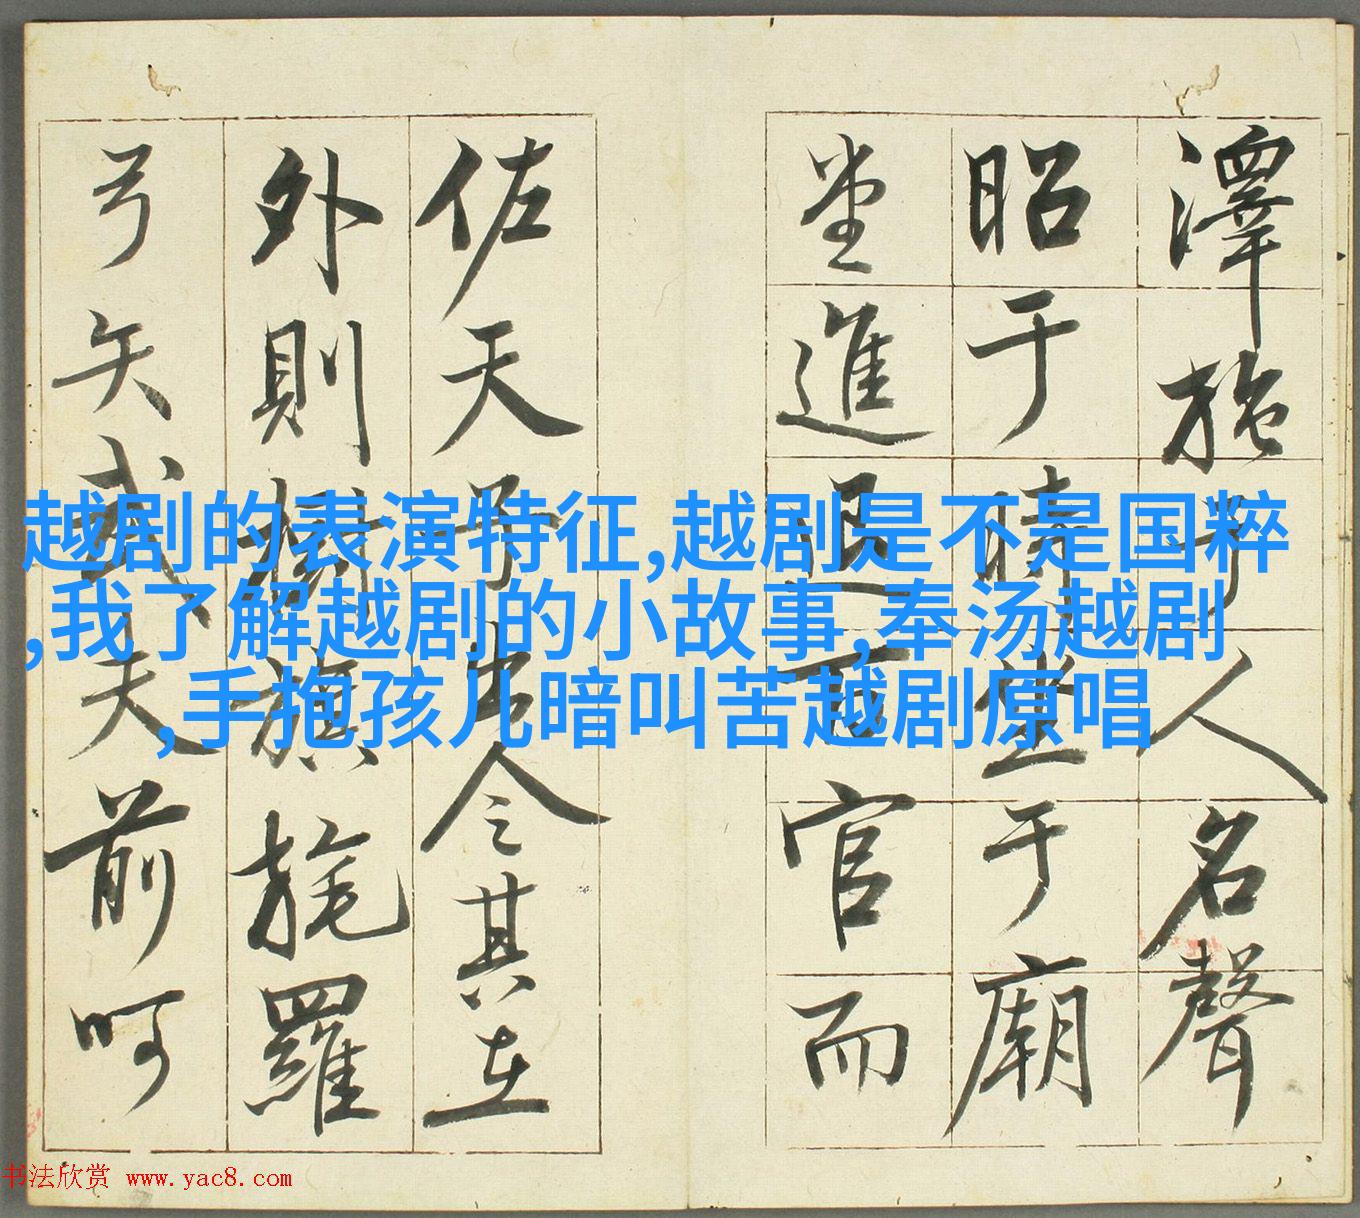 澤施于人名聲
昭于時坐于廟
堂進退百官而
佐天子出令其在
外則樹旗旄羅
弓矢武夫前呵
越剧的表演特征,越剧是不是国粹
,我了解越剧的小故事,奉汤越剧
,手抱孩儿暗叫苦越剧原唱
书法欣赏 www.yac8.com